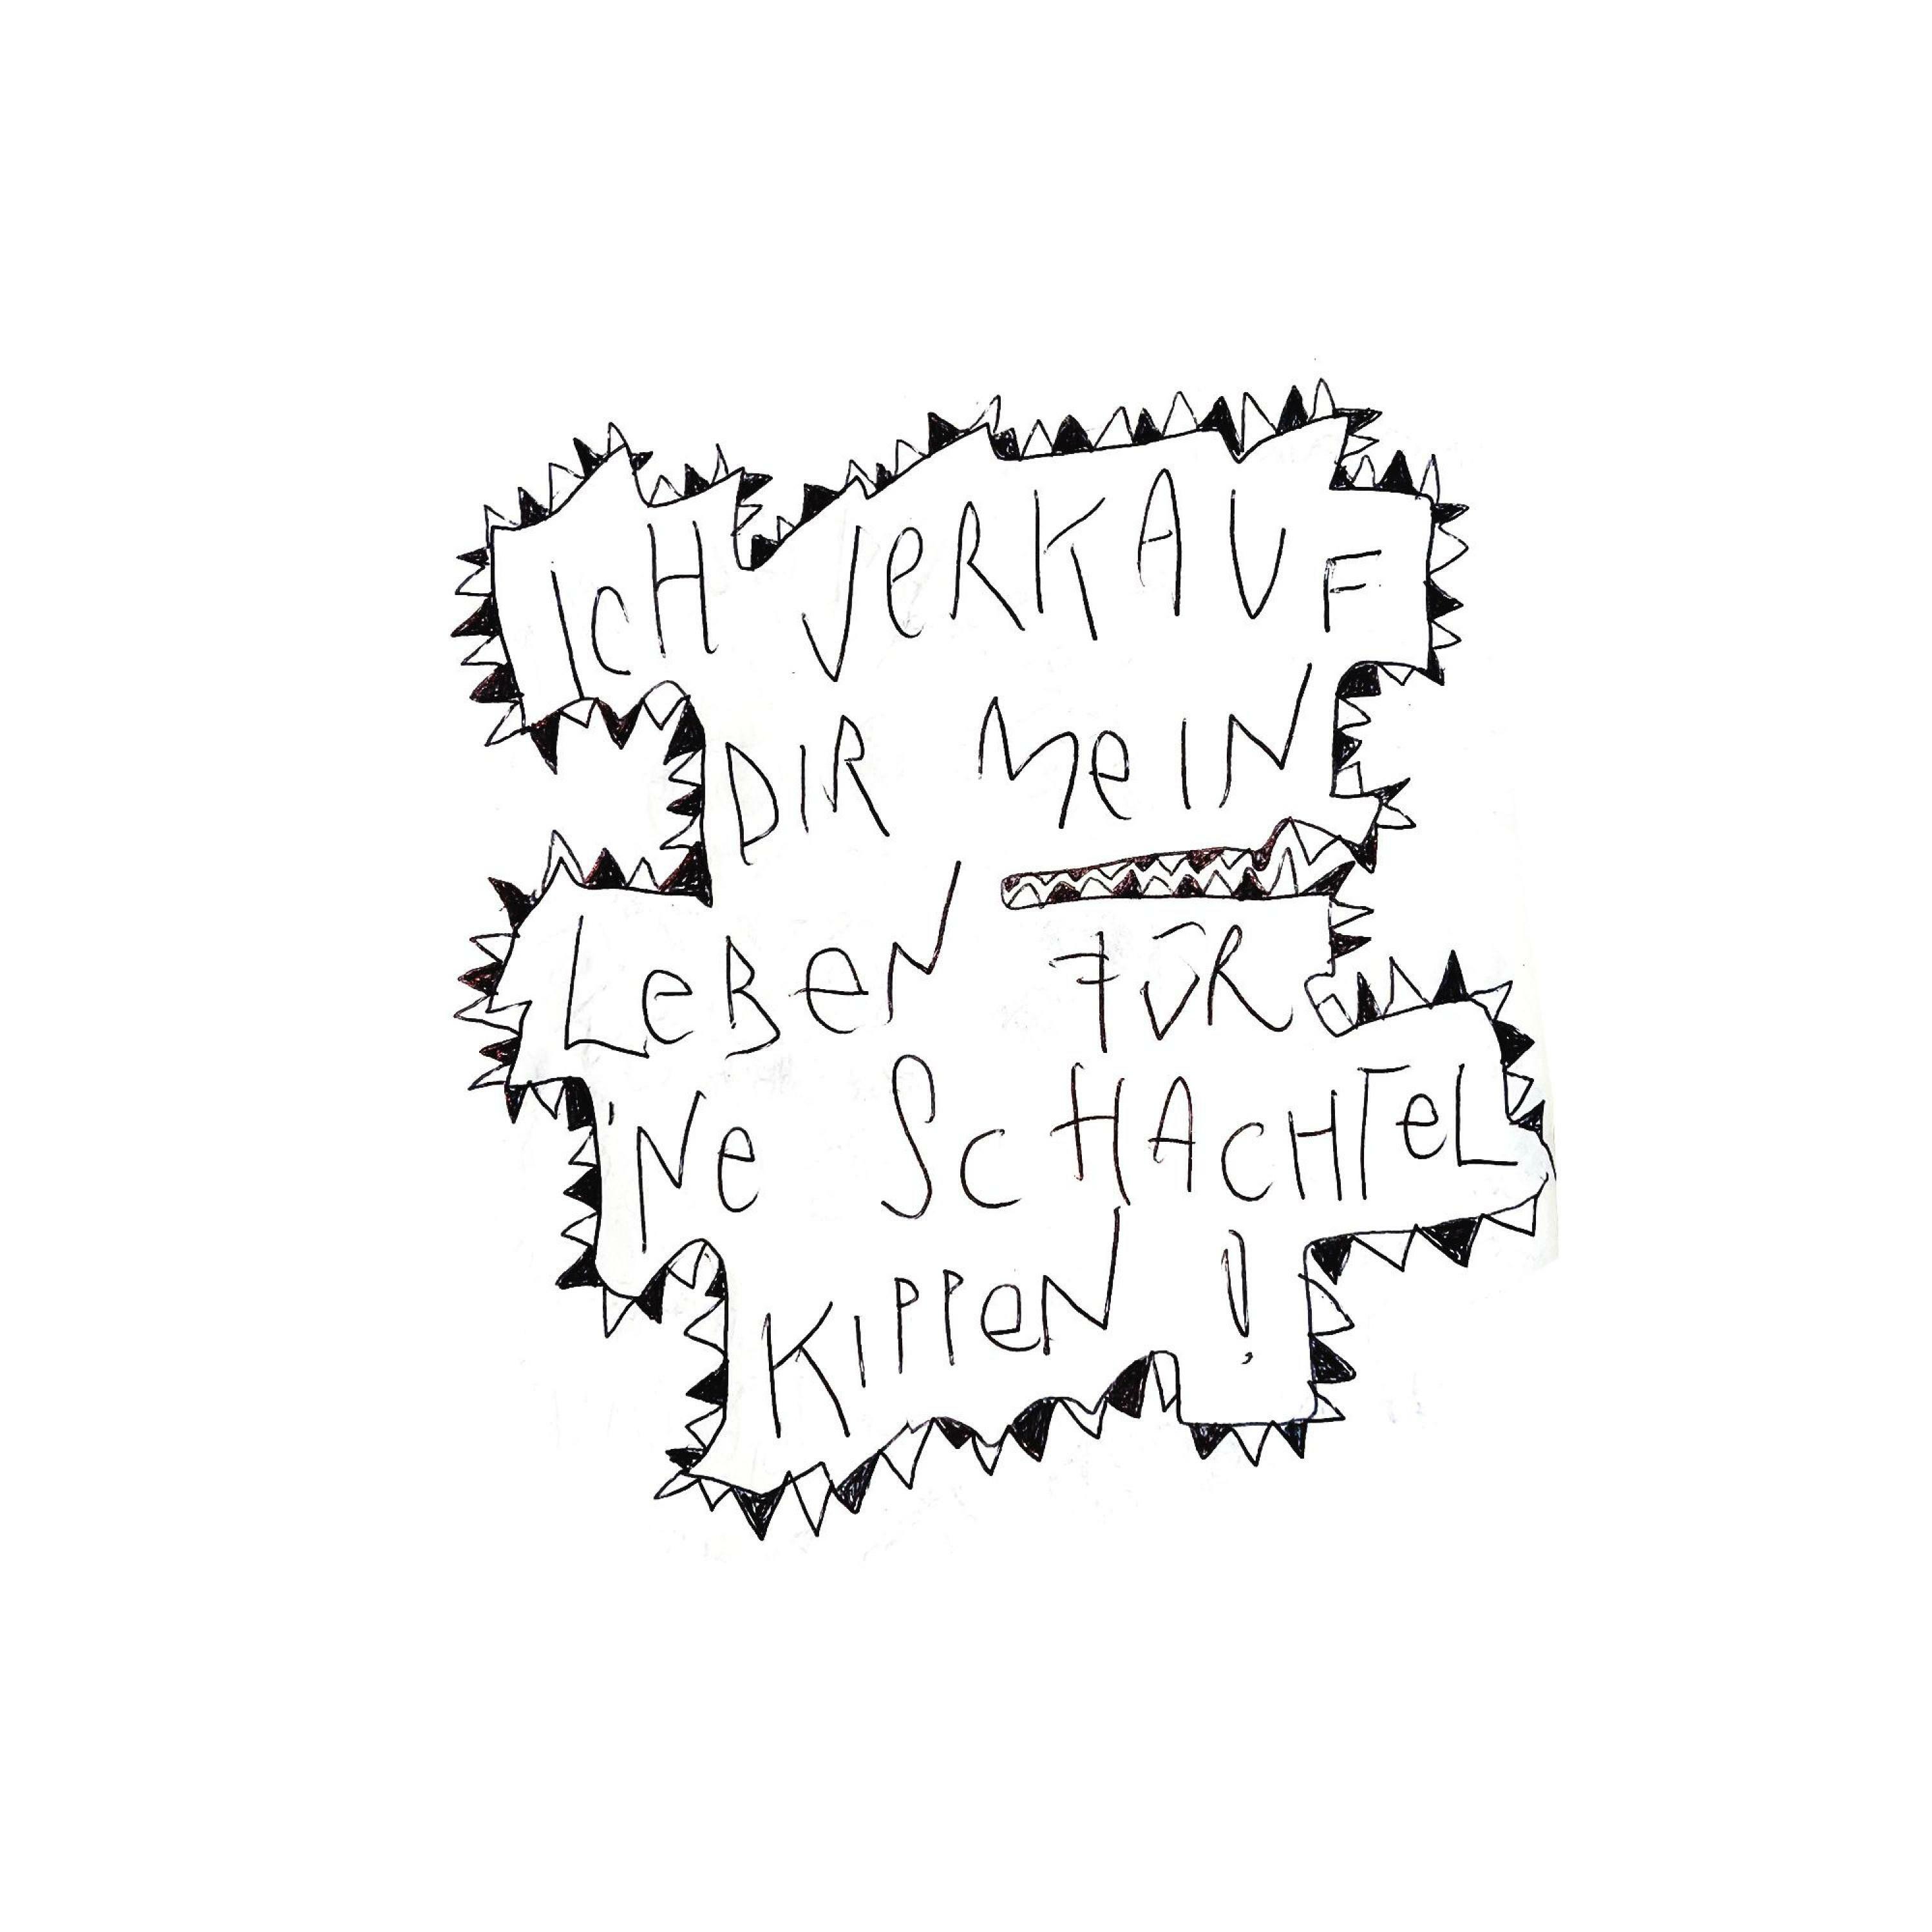 IcH VeRKAUF
DIR MeIN
LeBeN FÜR
'Ne ScHAcHTeL
KIPPeN!